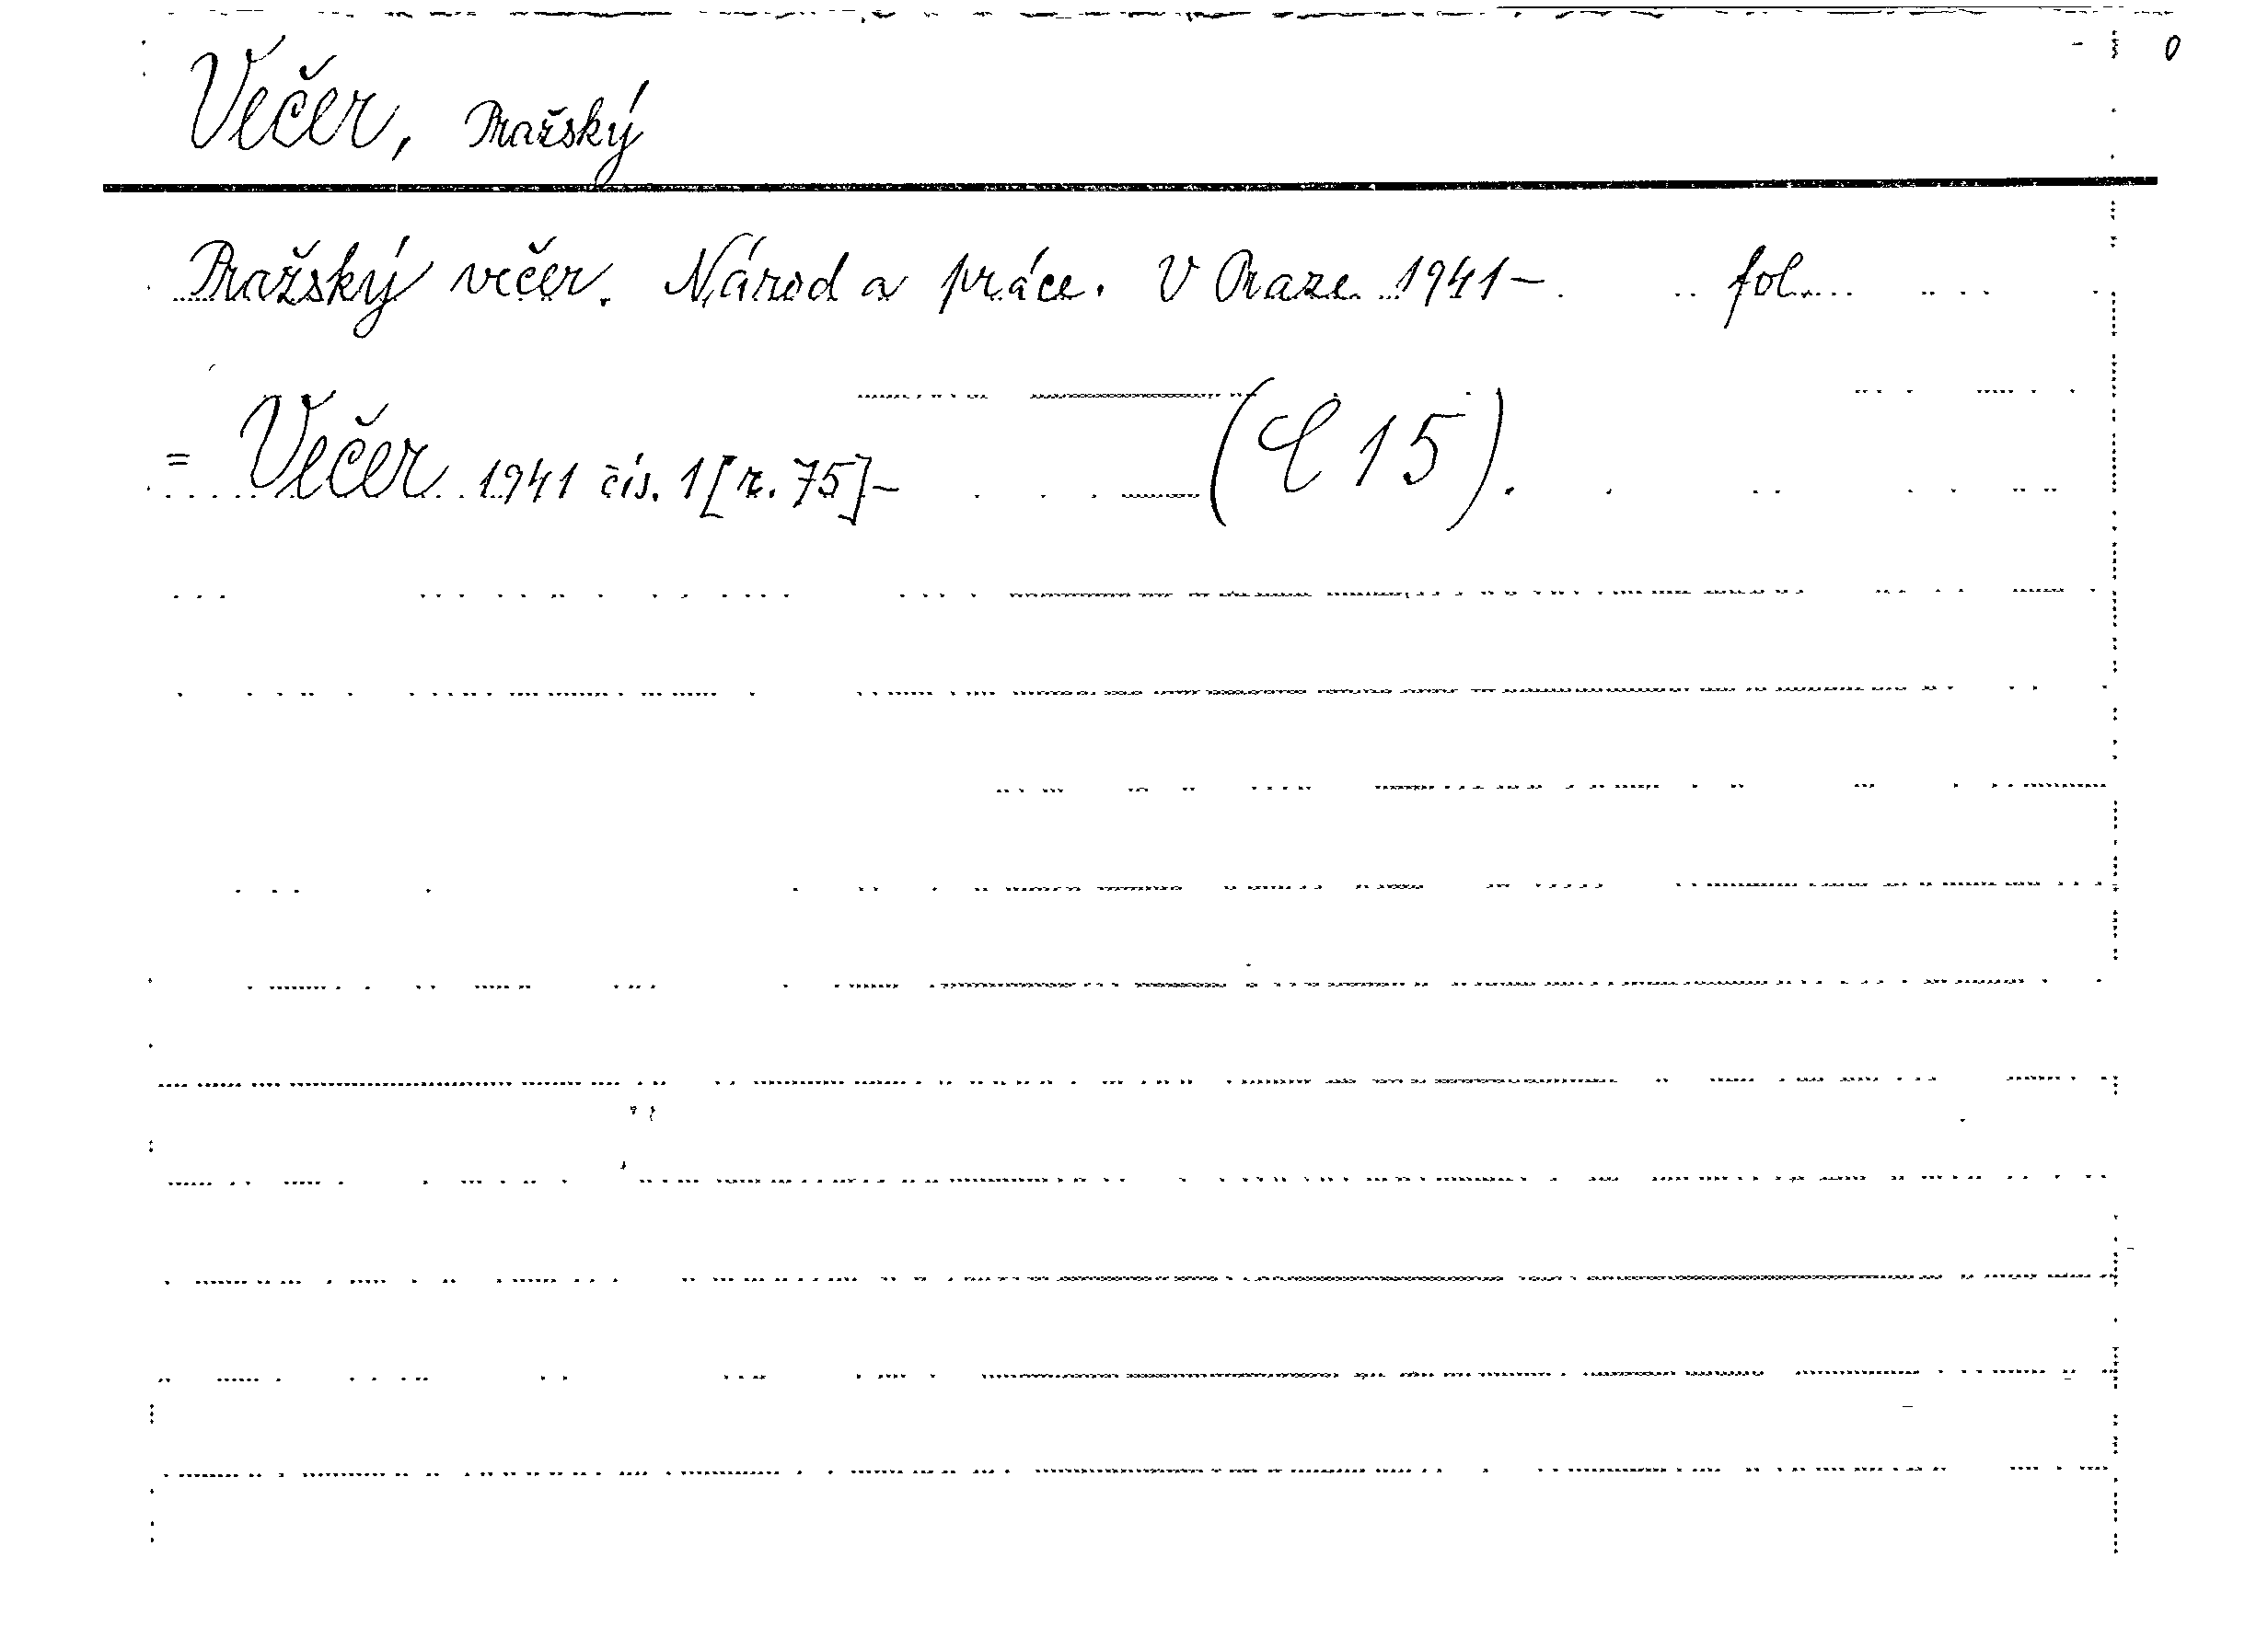 0
Večer, Pražský
Pražský večer. Národ a práce. V Praze 1941– fol.
= Večer 1941 čís. 1 [r. 75]– (C 15).